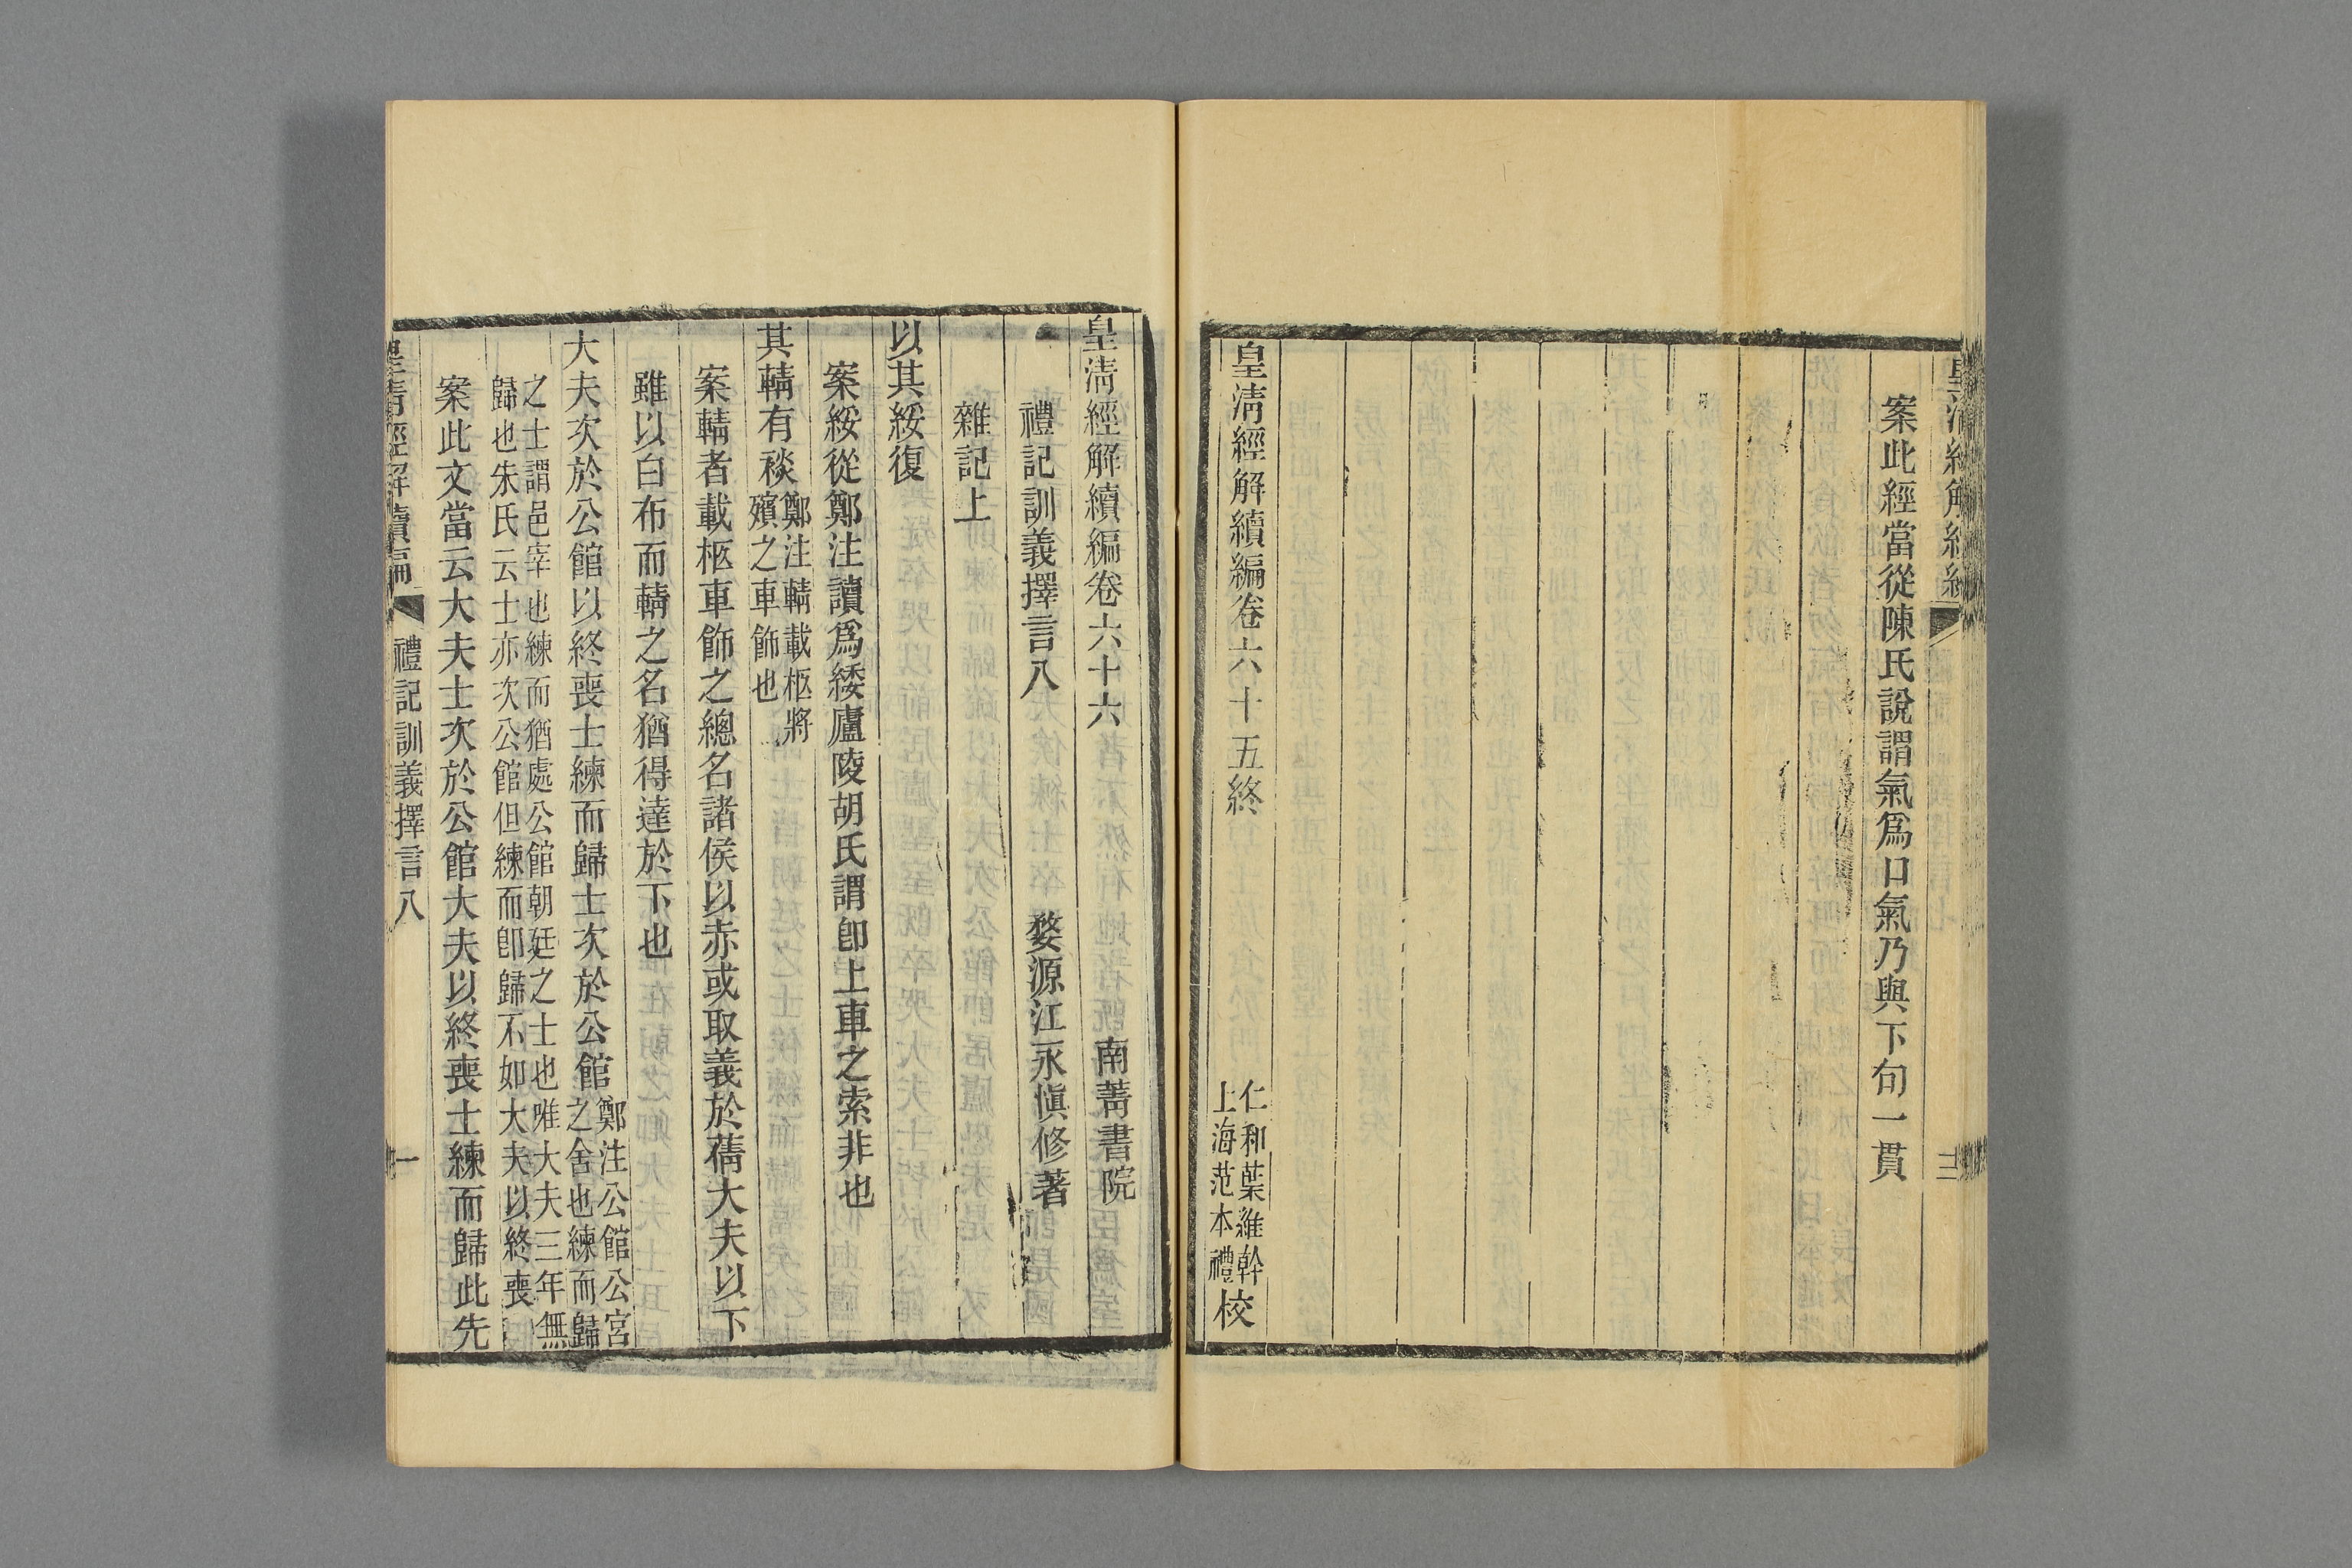 案此經當從陳氏說謂氣爲口氣乃與下句一貫
皇淸經解續編卷六十五終
仁和葉維幹
上海范本禮
校
皇淸經解續編卷六十六
南菁書院
禮記訓義擇言八
婺源江永愼修著
雜記上
以其綏復
案綏從鄭注讀爲緌廬陵胡氏謂卽上車之索非也
其輤有裧
鄭注輤載柩將
殯之車飾也
案輤者載柩車飾之總名諸侯以赤或取義於蒨大夫以下
雖以白布而輤之名猶得達於下也
大夫次於公館以終喪士練而歸士次於公館
鄭注公館公宮
之舍也練而歸
之士謂邑宰也練而猶處公館朝廷之士也唯大夫三年無
歸也朱氏云士亦次公館但練而卽歸不如大夫以終喪
案此文當云大夫士次於公館大夫以終喪士練而歸此先
皇淸經解續編
禮記訓義擇言八
一